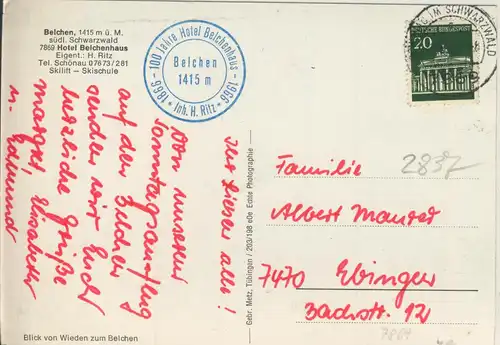 Belchen, 1415 m ü. M.
südl. Schwarzwald
7869 Hotel Belchenhaus
Eigent.: H. Ritz
Tel. Schönau 07673/281
Skilift – Skischule
1866 - 100 Jahre Hotel Belchenhaus - 1966
Belchen
1415 m
* Inh. H. Ritz *
IM SCHWARZWALD
DEUTSCHE BUNDESPOST
20
Ihr Lieben alle!
Von unserem
Sonntagsausflug
auf den Belchen
senden wir Euch
herzliche Grüße
Margret Elisabeth
u. Edmund
Gebr. Metz, Tübingen / 263/198 eDe Echte Photographie
2837
Familie
Albert
7470 Ebingen
Bachstr. 12
7869
Blick von Wieden zum Belchen